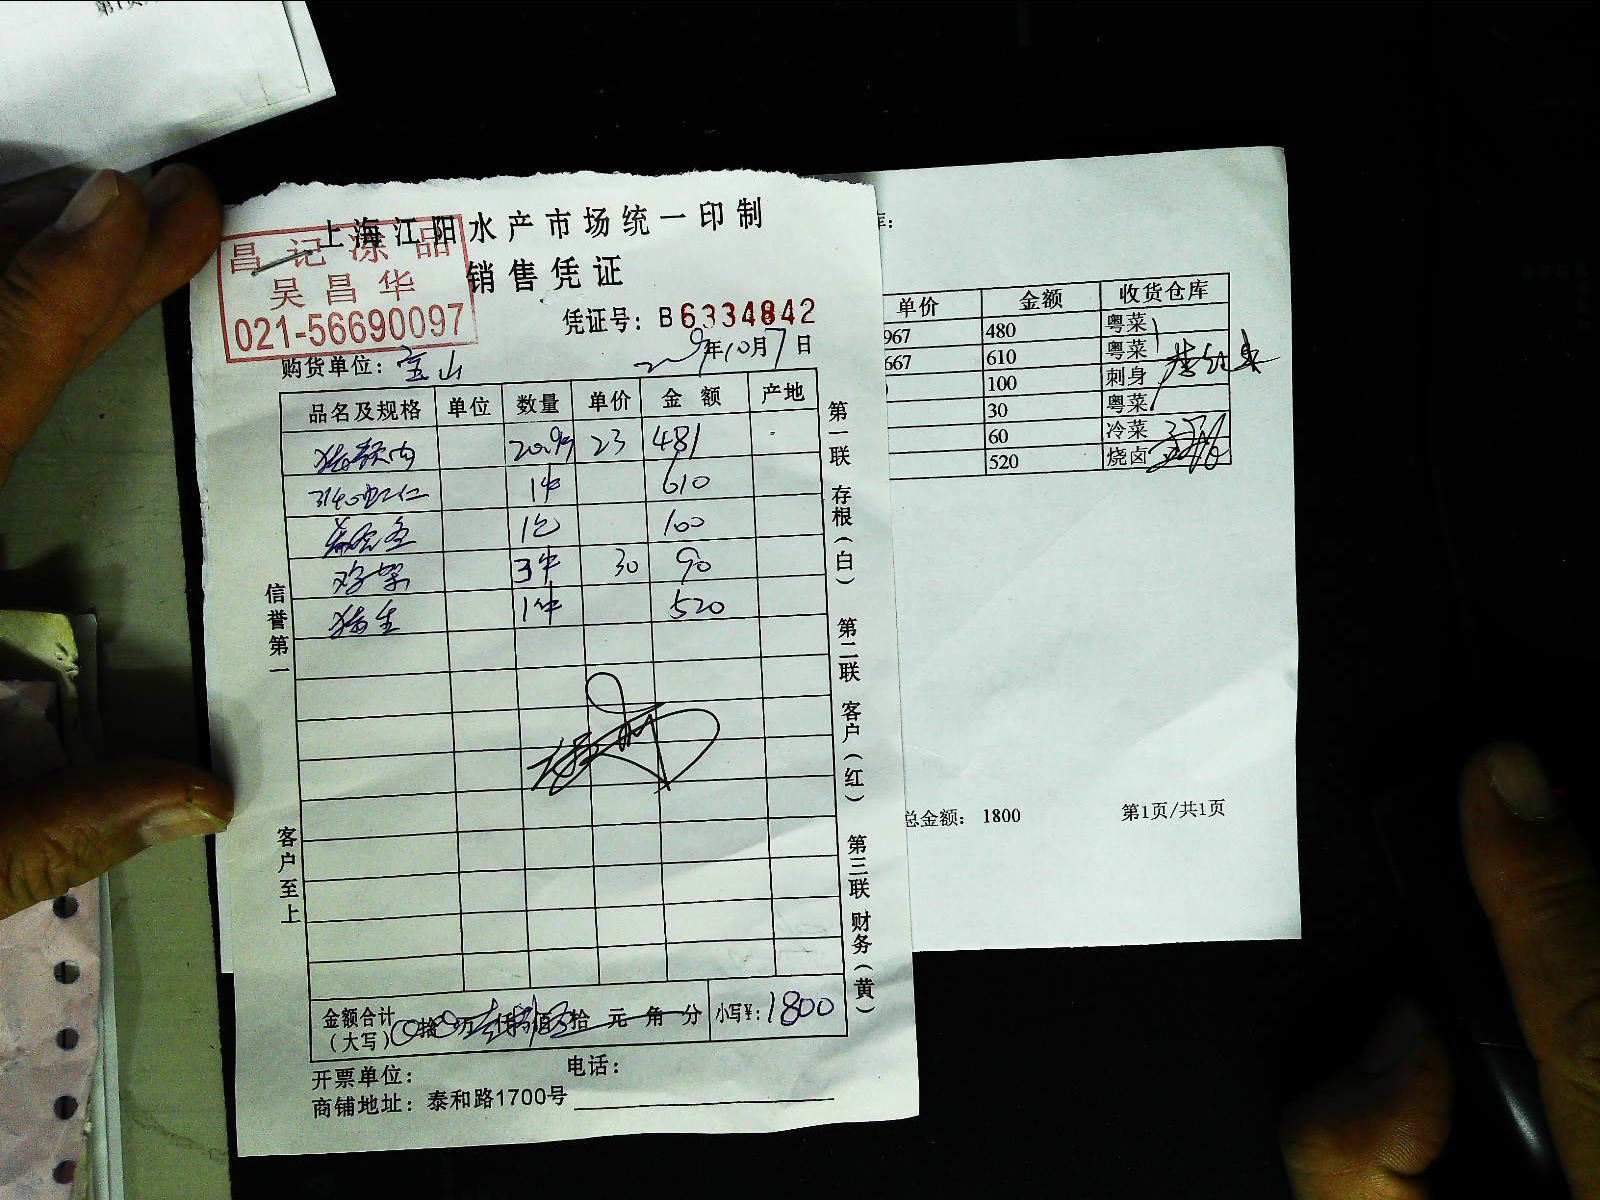 上海江阳水产市场统一印制
昌记涤品
吴昌华
021-56690097
销售凭证
凭证号：B6334842
年10月7日
购货单位：宝山
品名及规格 单位 数量 单价 金额 产地
猪颈肉 20.9 23 481
3140虾仁 1件 610
1包 100
鸡架 3件 30 90
1件 520
信誉第一
客户至上
第一联 存根（白）
第二联 客户（红）
第三联 财务（黄）
金额合计（大写） 拾 万 仟 佰 拾 元 角 分 小写¥：1800
开票单位： 电话：
商铺地址：泰和路1700号
库：
单价 金额 收货仓库
967 480 粤菜
667 610 粤菜
100 刺身
30 粤菜
60 冷菜
520 烧卤
总金额： 1800 第1页/共1页